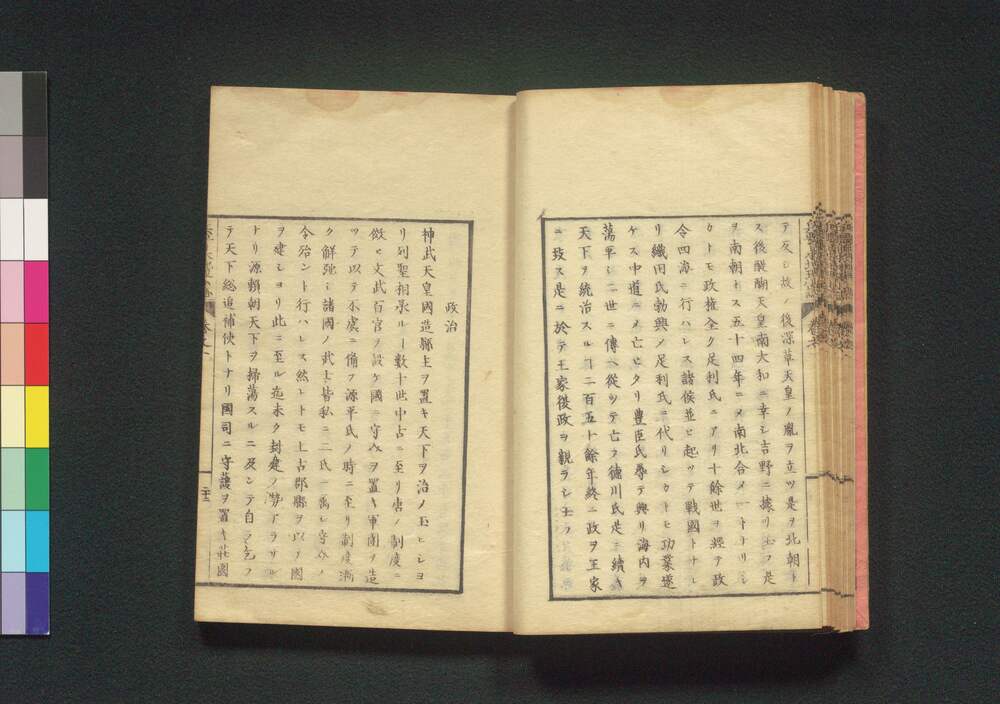 テ反シ故ノ後深草天皇ノ胤ヲ立ツ是ヲ北朝ト
ス後醍醐天皇南大和ニ幸シ吉野ニ據リ玉フ是
ヲ南朝トス五十四年ニ〆南北合〆一トナリシ
カトモ政権全ク足利氏ニアリ十餘世ヲ經テ政
令四海ニ行ハレス諸侯並ヒ起ツテ戰國トナレ
リ織田氏勃興〆足利氏ニ代リシカトモ功業遂
ケス中道ニ〆亡ヒタリ豊臣氏尋テ興リ海内ヲ
蕩平シ二世ニ傳ヘ從ツテ亡フ徳川氏是ニ續キ
天下ヲ統治スルヿ二百五十餘年終ニ政ヲ王家
ニ致ス是ニ於テ王家復政ヲ親ラシ玉フ
政治
神武天皇國造縣主ヲ置キ天下ヲ治メ玉ヒシヨ
リ列聖相承ルヿ數十世中古ニ至リ唐ノ制度ニ
倣ヒ文武百官ヲ設ケ國ニ守介ヲ置キ軍團ヲ造
ツテ以テ不虞ニ備フ源平氏ノ時ニ至リ制度漸
ク解弛シ諸國ノ武士皆私ニ二氏ニ属シ守介ノ
令殆ント行ハレス然レトモ上古郡縣ヲ以テ國
ヲ建シヨリ此ニ至ル迄未タ封建ノ勢アラサル
ナリ源頼朝天下ヲ掃蕩スルニ及ンテ自ラ乞フ
テ天下総追補使トナリ國司ニ守護ヲ置キ荘園
二十三